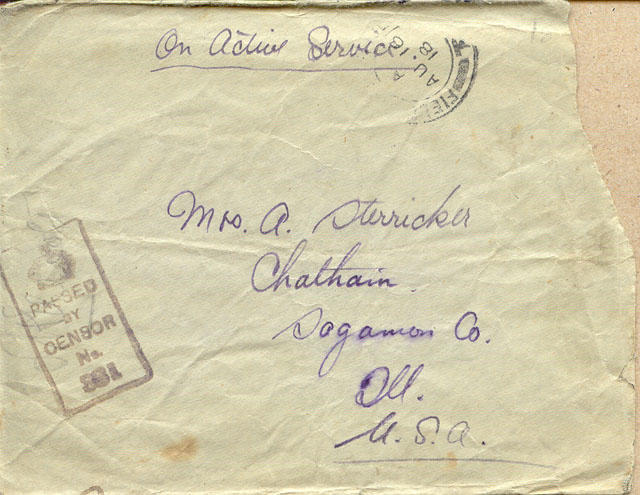 On Active Service
FIEL
AU
18
Mrs. A. Sterricker
Chatham.
Sagamon Co.
Ill.
U.S.A.
PASSED
BY
CENSOR
No.